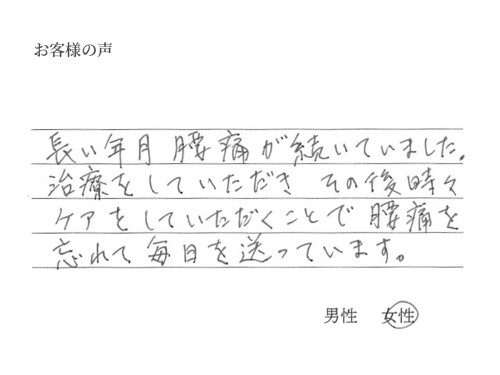 お客様の声
長い年月 腰痛が続いていました。
治療をしていただき その後時々
ケアをしていただくことで 腰痛を
忘れて毎日を送っています。
男性 女性